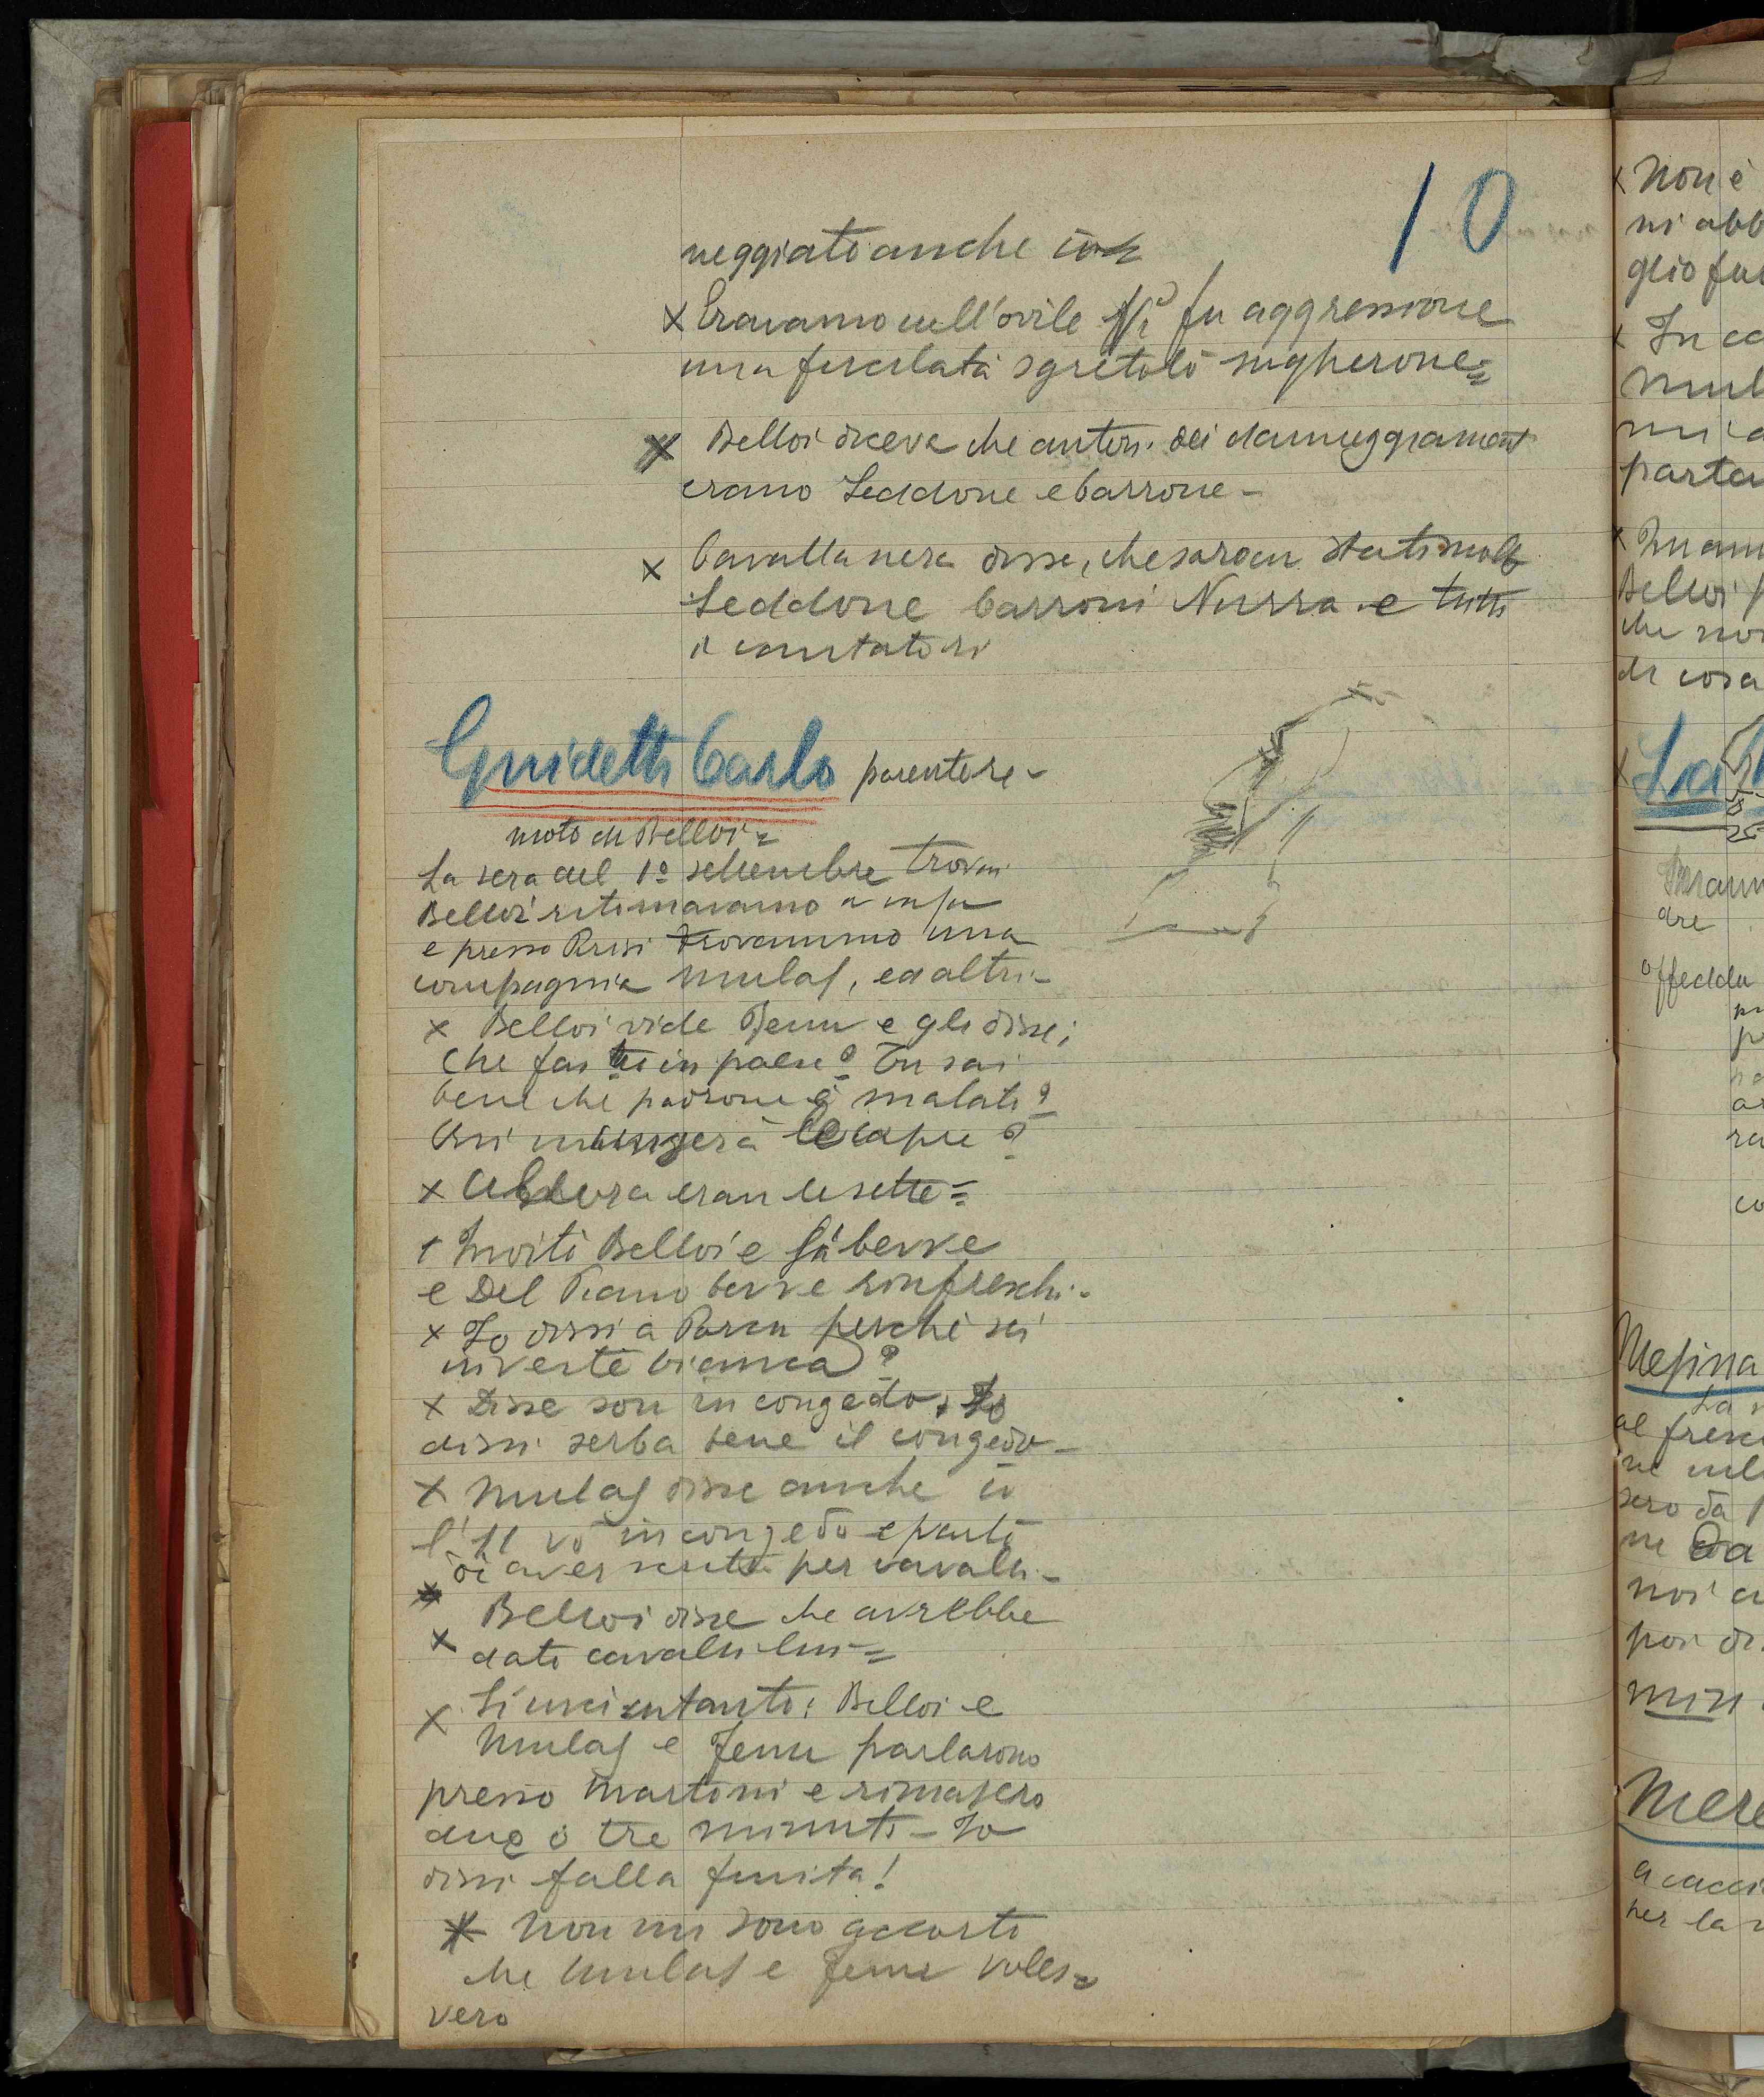 10
neggiato anche io
x Eravamo nell'ovile Vi fu aggressione
una fucilata sgretolò sugherone =
x Belloi diceva che autori dei danneggiament
erano Seddone e Carrone -
x Cavallanera disse, che saran stati molto
Seddone Carroni Nurra e tutti
i
Guidetti Carlo parentere -
nioto di Belloi =
La sera del 1º settembre trovai
Belloi ritornavamo a casa
e presso Prisi trovammo una
compagnia Mulas, ed altri -
x Belloi vide Fenu e gli disse;
Che fai tu in paese? Tu sai
bene che padrone è malato?
Chi mungerà le capre?
x Allora eran le sette =
x Invitò Belloi e si bevve
e Del Piano bevve rinfreschi -
x Io dissi a Porcu perchè sei
in veste bianca?
x Disse son in congedo. Io
dissi serba bene il congedo -
x Mulas disse anche io
l'11 vò in congedo e parlò
di aver scritto per cavalli -
x Belloi disse che avrebbe
x dato cavalli lui =
x Si uscì intanto: Belloi e
Mulas e Fenu parlarono
presso Martini e rimasero
due o tre minuti - Io
dissi falla finita!
x Non mi sono accorto
che Mulas e Fenu voles=
vero
x Non è
ni abb
glio fu
x In ca
Mul
mi a
parten
x
Belloi
che non
di cosa
x La
dre
offeddu
Mesina
La
al fresc
ne
sero da
ne Da
noi
poi di
min
Mere
a cacci
per la